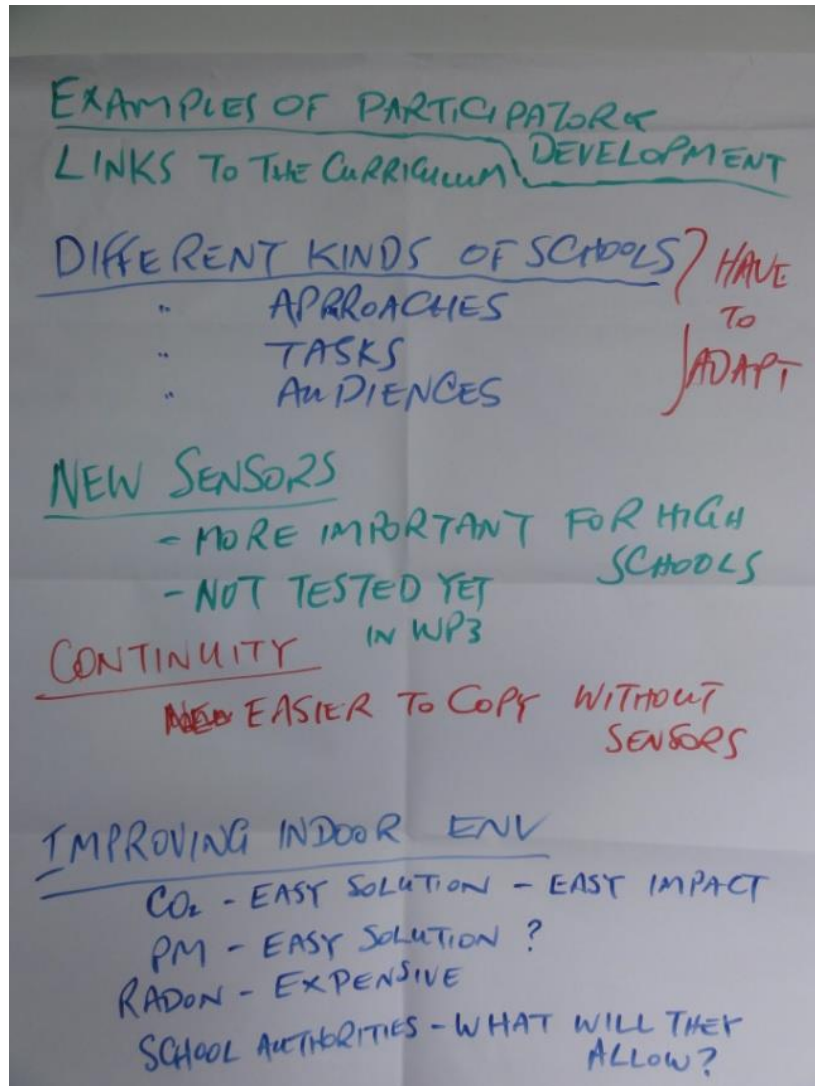 EXAMPLES OF PARTICIPATORY
DEVELOPMENT
LINKS TO THE CURRICULUM
DIFFERENT KINDS OF SCHOOLS
" APPROACHES
" TASKS
" AUDIENCES
HAVE
TO
ADAPT
NEW SENSORS
- MORE IMPORTANT FOR HIGH
SCHOOLS
- NOT TESTED YET
IN WP3
CONTINUITY
EASIER TO COPY WITHOUT
SENSORS
IMPROVING INDOOR ENV
CO₂ - EASY SOLUTION - EASY IMPACT
PM - EASY SOLUTION ?
RADON - EXPENSIVE
SCHOOL AUTHORITIES - WHAT WILL THEY
ALLOW?